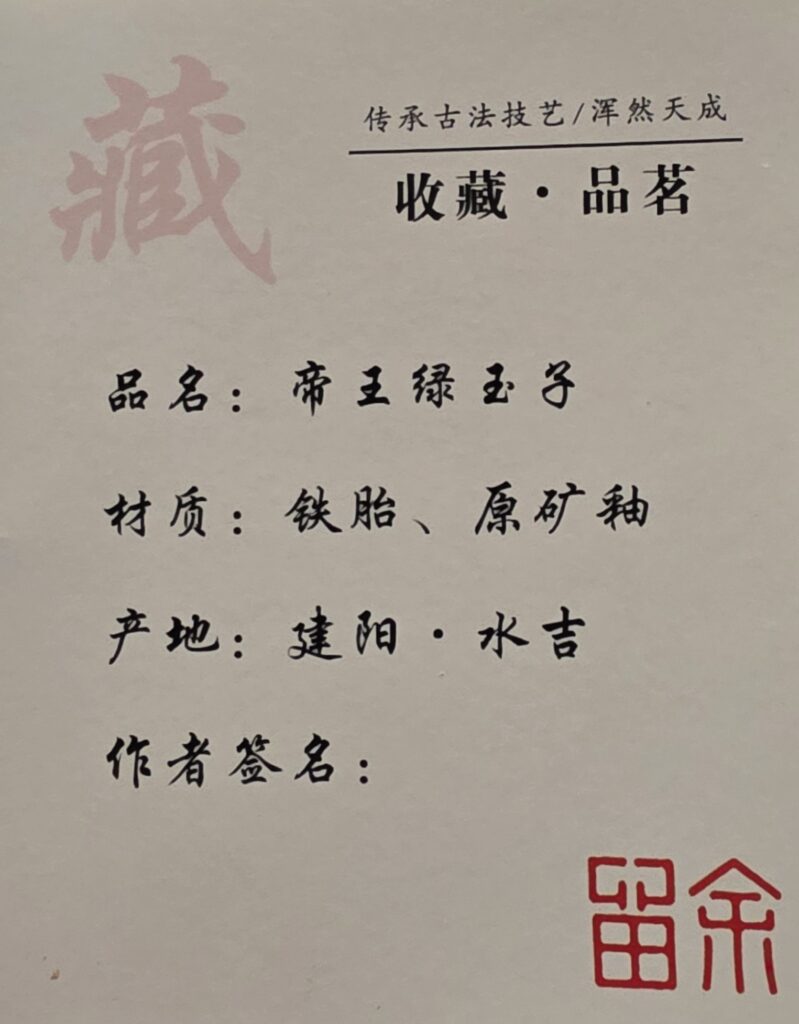 藏
传承古法技艺/浑然天成
收藏·品茗
品名：帝王绿玉子
材质：铁胎、原矿釉
产地：建阳·水吉
作者签名：
留余